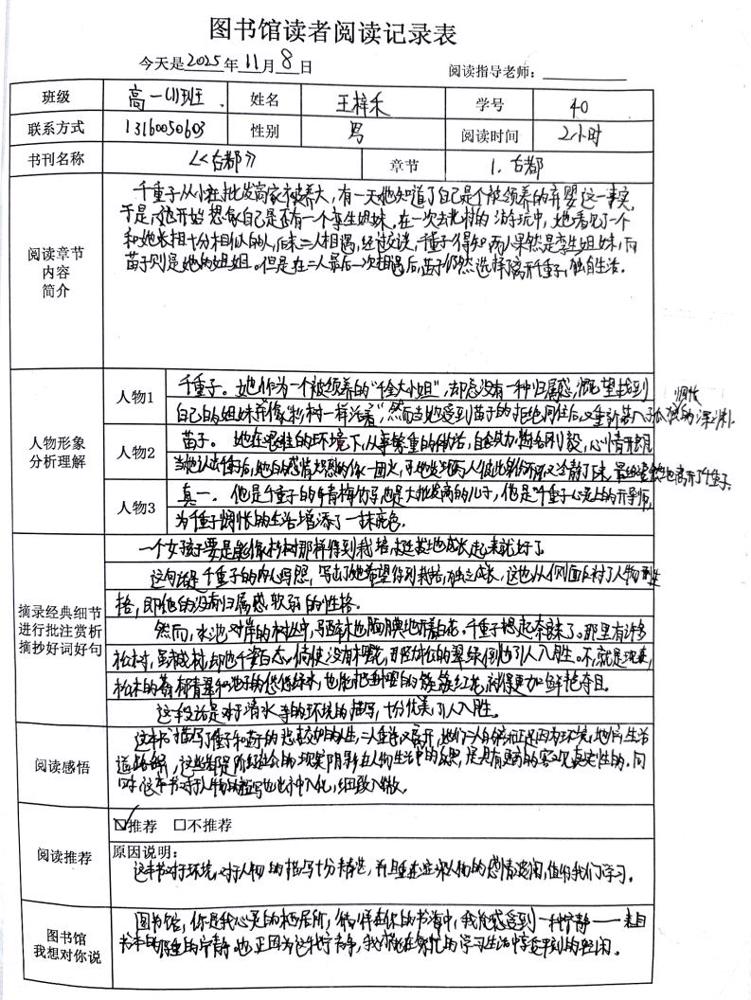 图书馆读者阅读记录表
今天是2025年11月8日 阅读指导老师：
班级 高一(1)班 姓名 王梓禾 学号 40
联系方式 13160050603 性别 男 阅读时间 2小时
书刊名称 《古都》 章节 1. 古都
阅读章节内容简介
千重子从小在批发商家被养大，有一天她知道了自己是个被领养的弃婴这一事实，
于是她开始想象自己是否有一个孪生姐妹，在一次去北村的游玩中，她看见了一个
和她长相十分相似的人，后来二人相遇，经过交谈，千重子得知两人果然是孪生姐妹，而
苗子则是她的姐姐。但是在二人最后一次相遇后，苗子仍然选择了离开千重子，独自生活。
人物形象分析理解
人物1 千重子。她作为一个被领养的"千金大小姐"，却总没有一种归属感，渴望找到
自己的姐妹并"像杉树一样活着"，然而当她受到苗子的拒绝同住后，又重新落入了孤独惆怅的深渊。
人物2 苗子。她在艰难的环境下，从事繁重的做活，自食其力，
当她认出千重子后，她的感情炽烈的像一团火，
人物3 真一。他是千重子的青梅竹马，也是大批发商的儿子，他是千重子心灵上的开导师，
为千重子惆怅的生活增添了一抹底色。
摘录经典细节
进行批注赏析
摘抄好词好句
一个女孩子要是能像杉树那样得到栽培，挺拔地成长起来就好了。
这句话是千重子的内心写照，写出了她希望得到栽培，独立成长，这也从侧面反衬了人物性
格，即她的没有归属感，软弱的性格。
然而，水池对岸的树丛中，马醉木也朦胧地开着白花，千重子想起奈良来了。那里有许多
松树，虽不成材，却也千姿百态。倘使没有樱花，那劲松的翠绿倒也引人入胜。不，就是现在，
松木的蓊郁青翠和池子的悠悠绿水，也能把垂樱的簇簇红花，衬得更加鲜艳夺目。
这一段话是对于清水寺的环境的描写，十分优美，引人入胜。
阅读感悟
这本书描写了千重子和苗子的悲欢交加的人生，二人重逢又离开，
同
时，这本书对于人物的描写也出神入化，细致入微。
阅读推荐
☑推荐 □不推荐
原因说明：
这本书对于环境，对于人物的描写十分精艺，并且重在突出人物的感情波澜，值得我们学习。
图书馆
我想对你说
图书馆，你是我心灵的栖居所，徜徉在你的书海中，我能感受到一种宁静——来自
书本的厚重的宁静。也正因为这样的宁静，我才能在繁忙的学习生活中享受片刻的轻闲。